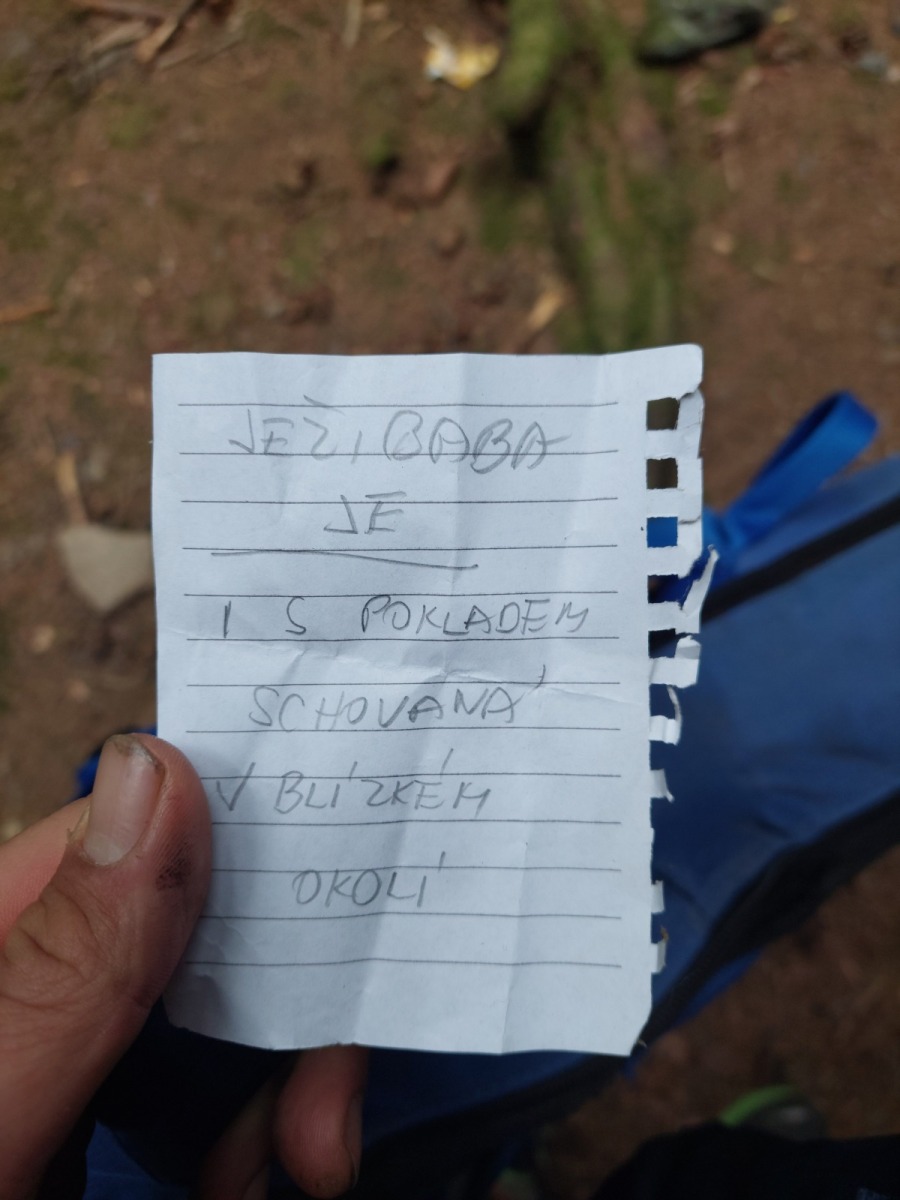 JEŽIBABA
JE
I S POKLADEM
SCHOVANÁ
V BLÍZKÉM
OKOLÍ